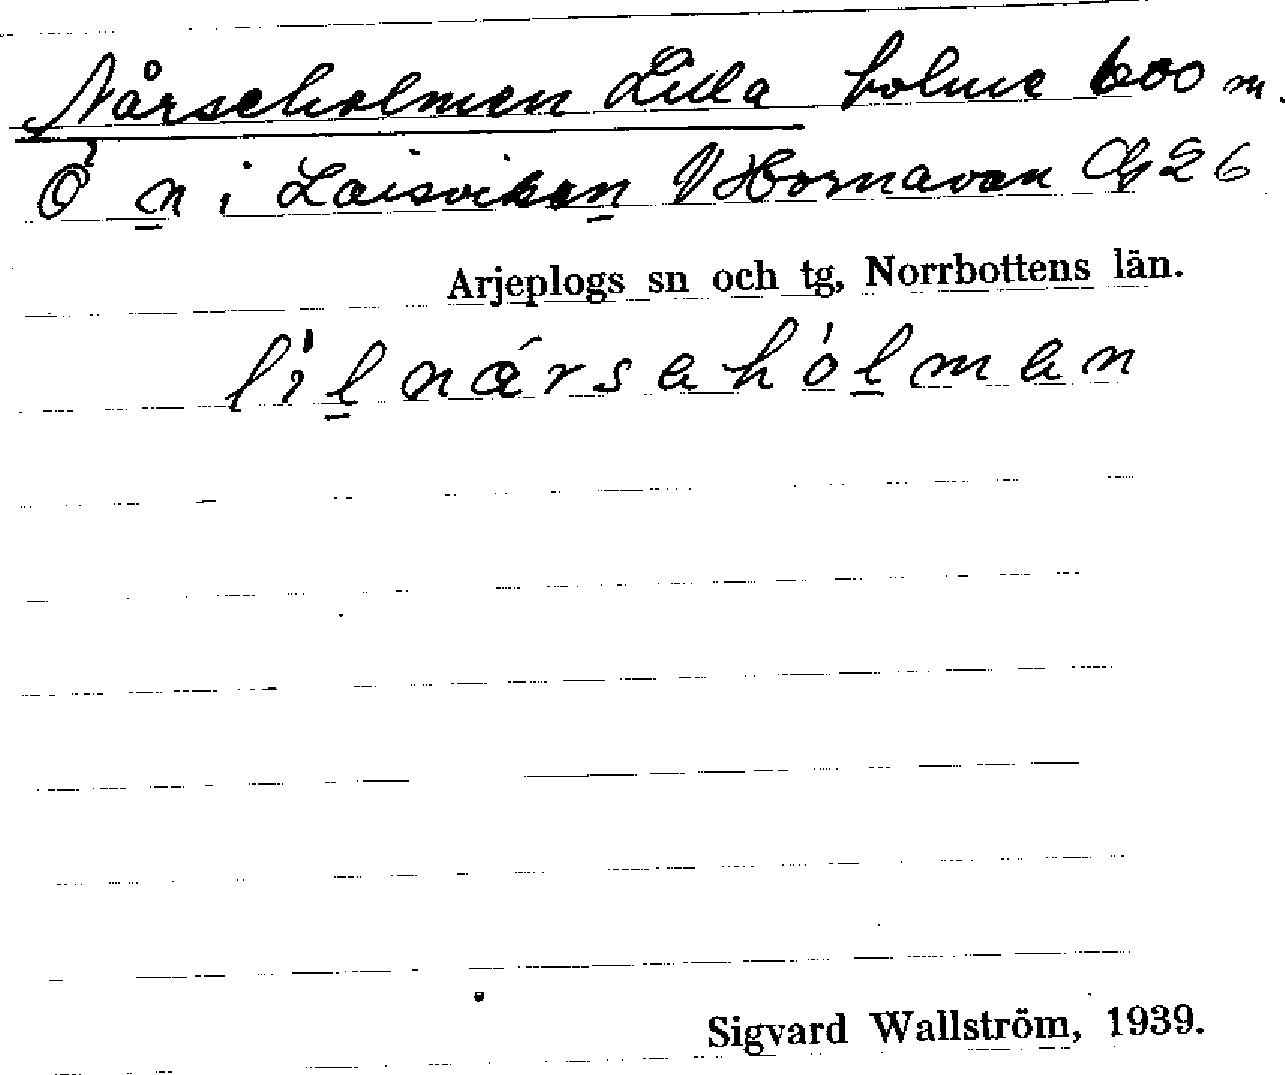 Nårseholmen Lilla holme 600 m.
Ö n i Laisviken / Hornavan G26
Arjeplogs sn och tg, Norrbottens län.
lil nårsahólman
Sigvard Wallström, 1939.